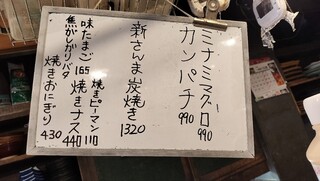 ミナミマグロ 990
カンパチ 990
新さんま炭焼き 1320
味たまご 165
焼きピーマン 110
焼きナス 440
焦がしガリバタ
焼きおにぎり 430